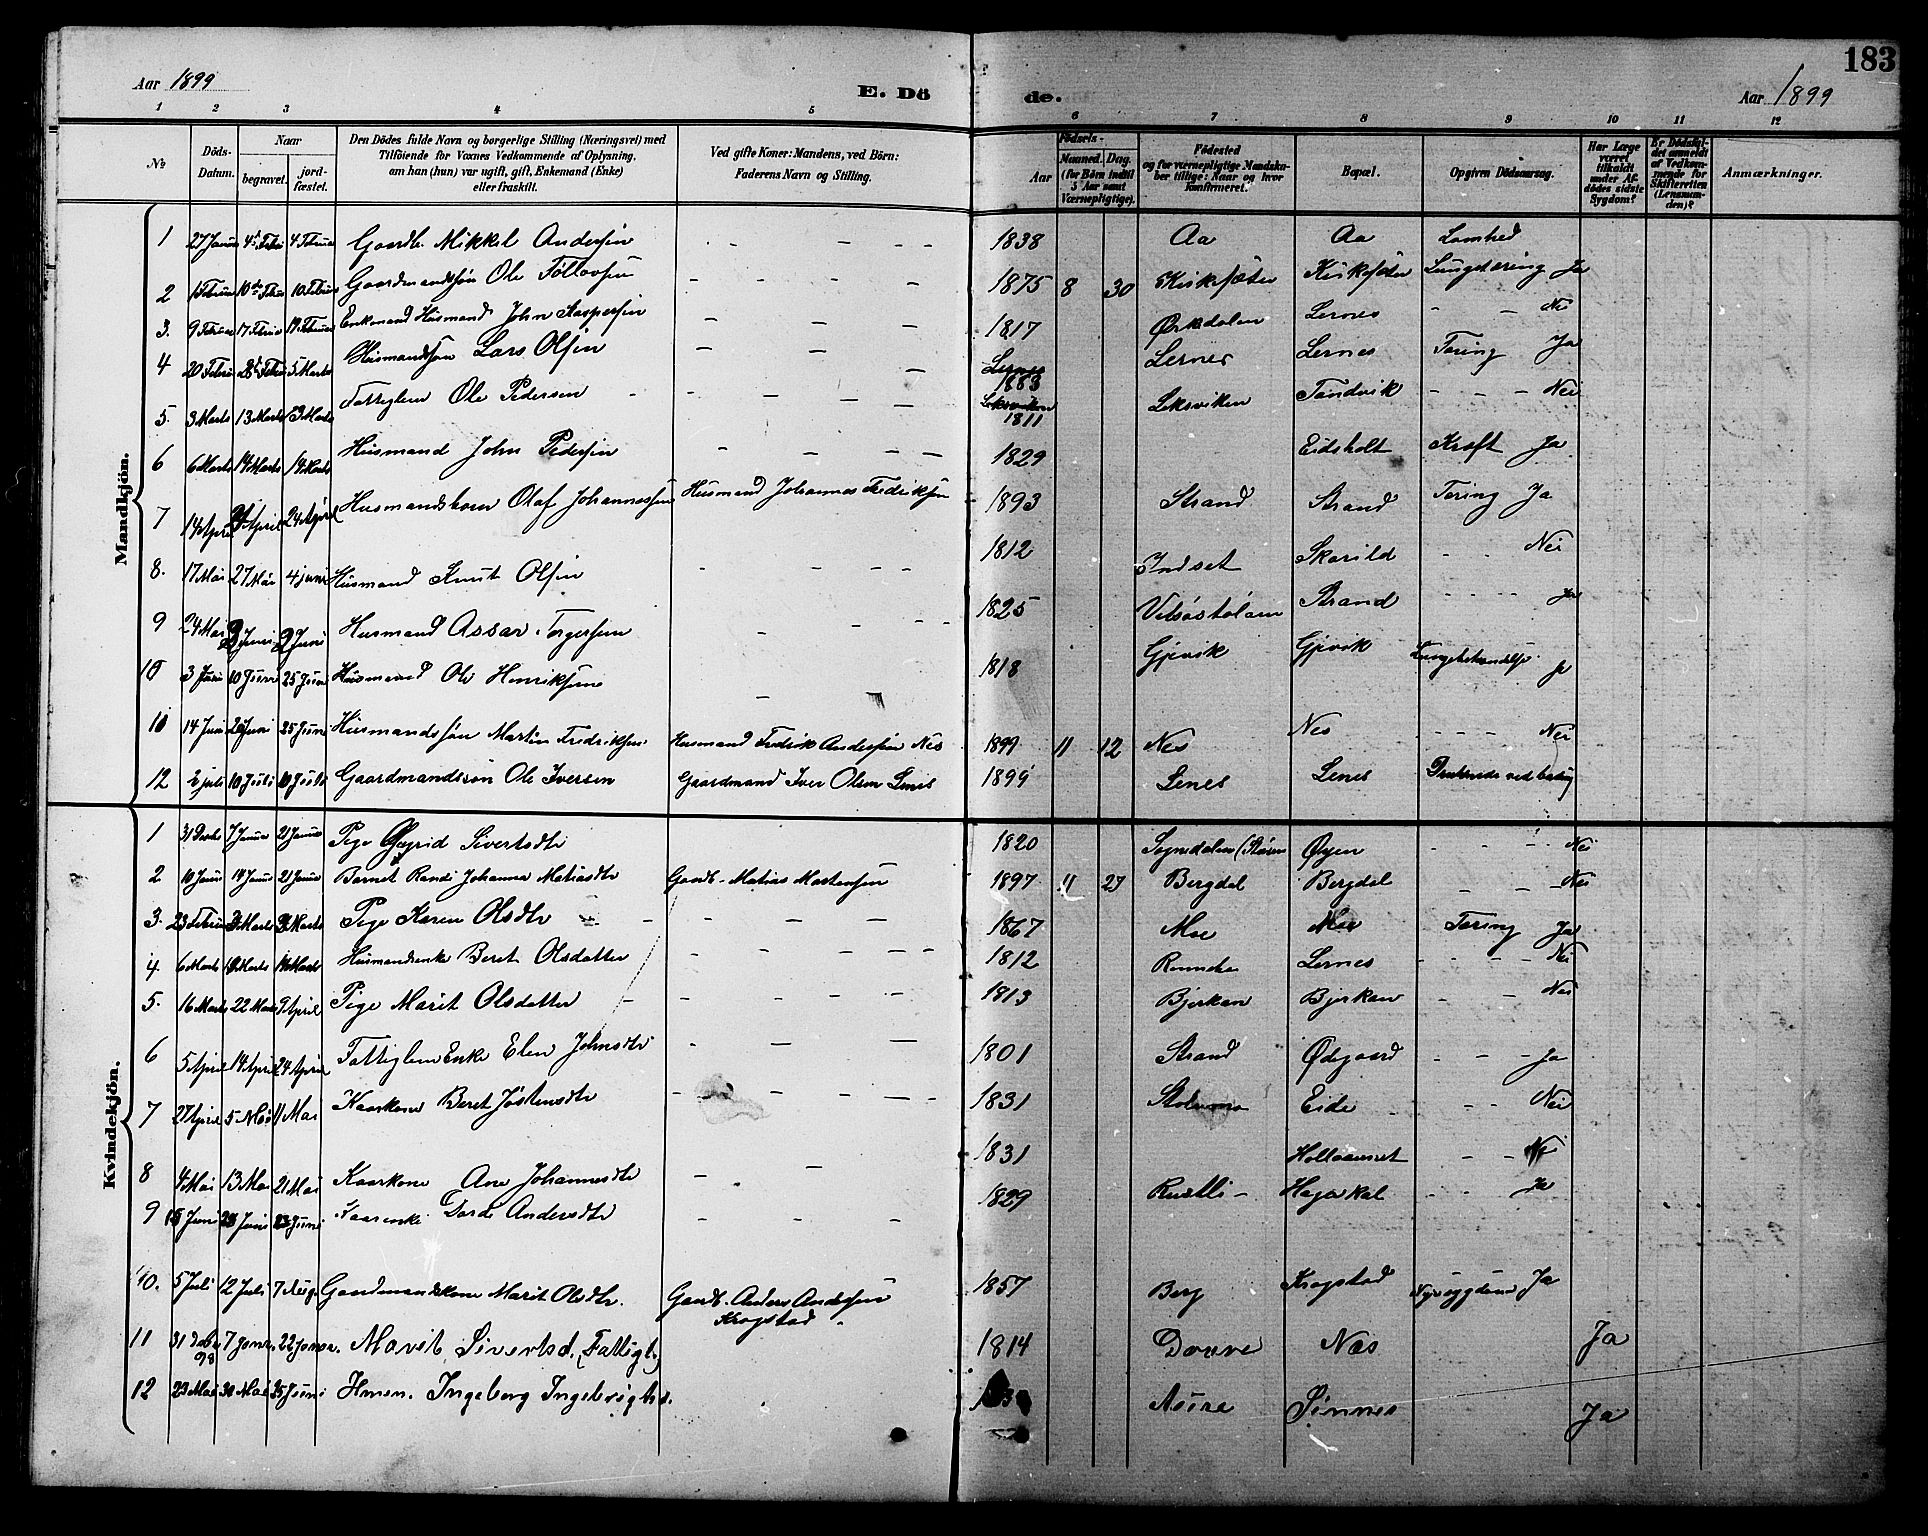 183
Aar 1899
E. Dö
de.
Aar 1899
1 2 3 4 5 6 7 8 9 10 11 12
№
Döds-Datum.
Naar
begravet.
jord-fæstet.
Den Dödes fulde Navn og borgerlige Stilling (Næringsvei) med
Tilföiende for Voxnes Vedkommende af Oplysning,
om han (hun) var ugift, gift, Enkemand (Enke)
eller fraskilt.
Ved gifte Koner: Mandens, ved Börn:
Faderens Navn og Stilling.
Födsels-
Aar
Maaned. Dag.
(for Börn indtil
5 Aar samt
Værnepligtige).
Födested
og for værnepligtige Mandska-
ber tillige: Naar og hvor
konfirmeret.
Bopæl.
Opgiven Dödsaarsag.
Har Læge
været
tilkaldt
under Af-
dödes sidste
Sygdom?
Er Dödsfal-
det anmeldt
af Vedkom-
mende for
Skifteretten
(Lensman-
den)?
Anmærkninger.
Mandkjön.
1 27 Janua 4 Febr 4 Februa Gaardb. Mikkel Andersen - - - - 1838 Aa Aa Lamhed
2 10 Februa Gaardmandssøn Ole - - - - 1875 8 30 Kirksæter Kirksæter Lungetæring Ja
3. 9 Februa 17 Februa 19 Februa Enkemand Husmand John Kaspersen - - - 1817 Ørkedalen Lernes - - Nei
4 20 Febru 28 Febru 5 Marts Husmandsøn Lars Olsen - - - Lernes 1883 Lernes Lernes Tæring Ja
5. 3 Marts 13 Marts 13 Marts Fattiglem Ole Pedersen - - - - Leksviken 1811 Leksviken Tandvik - - - Nei
6 6 Marts 14 Marts 19 Marts Husmand John Pedersen - - - - 1829 Eidsholt Kræft Ja
7 14 April April 24 April Husmandsbarn Olaf Johannessen Husmand Johannes Fredriksen 1893 Strand Strand Tæring Ja
8. 17 Mai 27 Mai 4 Juni Husmand Knut Olsen - - - - 1812 Indset Skarild - - Nei
9 24 Mai 2 Juni 2 Juni Husmand Assar Torgersen - - - 1825 Strand - - - - Ja
10 3 Juni 10 Juni 25 Juni Husmand Ole Henriksen - 1818 Gjevik Gjevik Ja
11 14 Juni 20 Juni 25 Juni Husmandssøn Martin Fredriksen Husmand Fredrik Andersen Nes 1899 11 12 Nes Nes - - - Nei
12 2 juli 10 Juli 10 Juli Gaardmandssøn Ole Iversen Gaardmand Iver Olsen Lenes 1899 Lenes Lenes Druknede ved
Kvindekjön.
1 31 Decbr 7 Janua 21 Janua Pige Sivertsdtr 1820 Sognedalen (Støren Øyen - - - - Nei
2 10 Janu 14 Janu 21 Janua Barnet Randi Johanna Matiasdtr Gaardb. Matias Mortensen 1897 11 27 Bergdal Bergdal - - - Nei
3. 23 Februa Marts Marts Pige Karen Olsdtr - - - - - 1867 Moe Moe Tæring Ja
4 6 Marts Marts Marts Husmandsenke Beret Olsdatter - - - - - 1812 Lernes - - - - Nei
5. 16 Marts 22 Marts 9 April Pige Marit Olsdatter - - - - - - 1813 Bjerkan Bjerkan - - Nei
6 5 April 14 April 24 April Fattiglem Enke Elen Johnsdtr - - - - 1801 Strand Ødegaard - - - Ja
7 27 April 5 Mai 11 Mai Kaarkone Beret Jøstensdtr - - - - - - 1831 Eide - - - Nei
8 4 Mai 13 Mai 21 Mai Kaarkone Ane Johannesdtr - - 1831 - - Nei
9 Juni Juni Juni Kaarenke Dorde Andersdtr - - - - 1829 Rustli - - - Ja
10. 5 Juli 12 Juli 7 Aug. Gaardmandskone Marit Olsdtr. Gaardb. Anders Andersen
Krogstad 1857 Berg Krogstad Nyresygdom Ja
11 31 Decbr 98 7 Janr. 22 Januar. Marit Sivertsd. (Fattigl.) 1814 Dovre Næs Ja
12 23 Mai 30 Mai 25 Juni Hmen. Ingeborg Ingebrigtsd. Asire Sinnes Ja